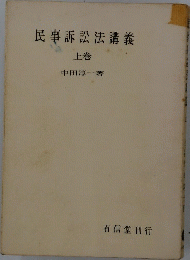 民事訴訟法講義
上巻
中田淳一著
有信堂刊行